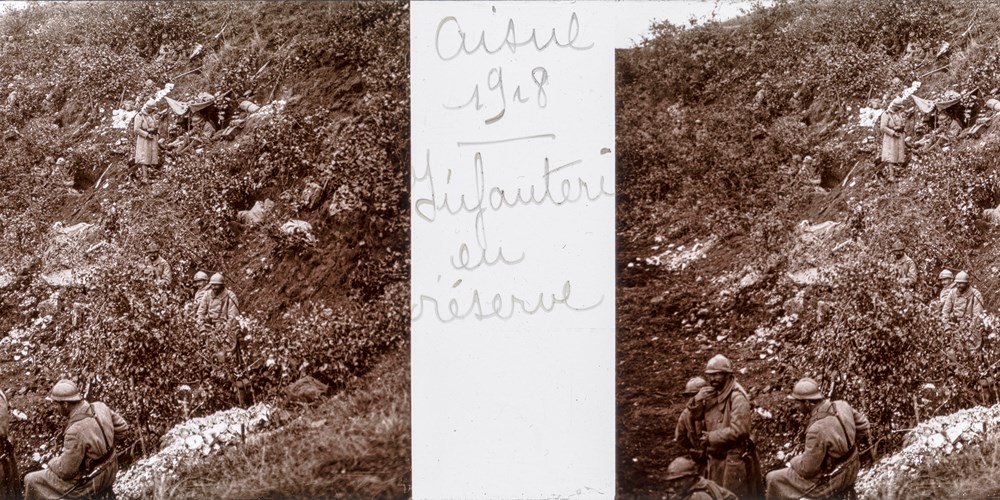 Aisne
1918
L'infanteri
en
réserve